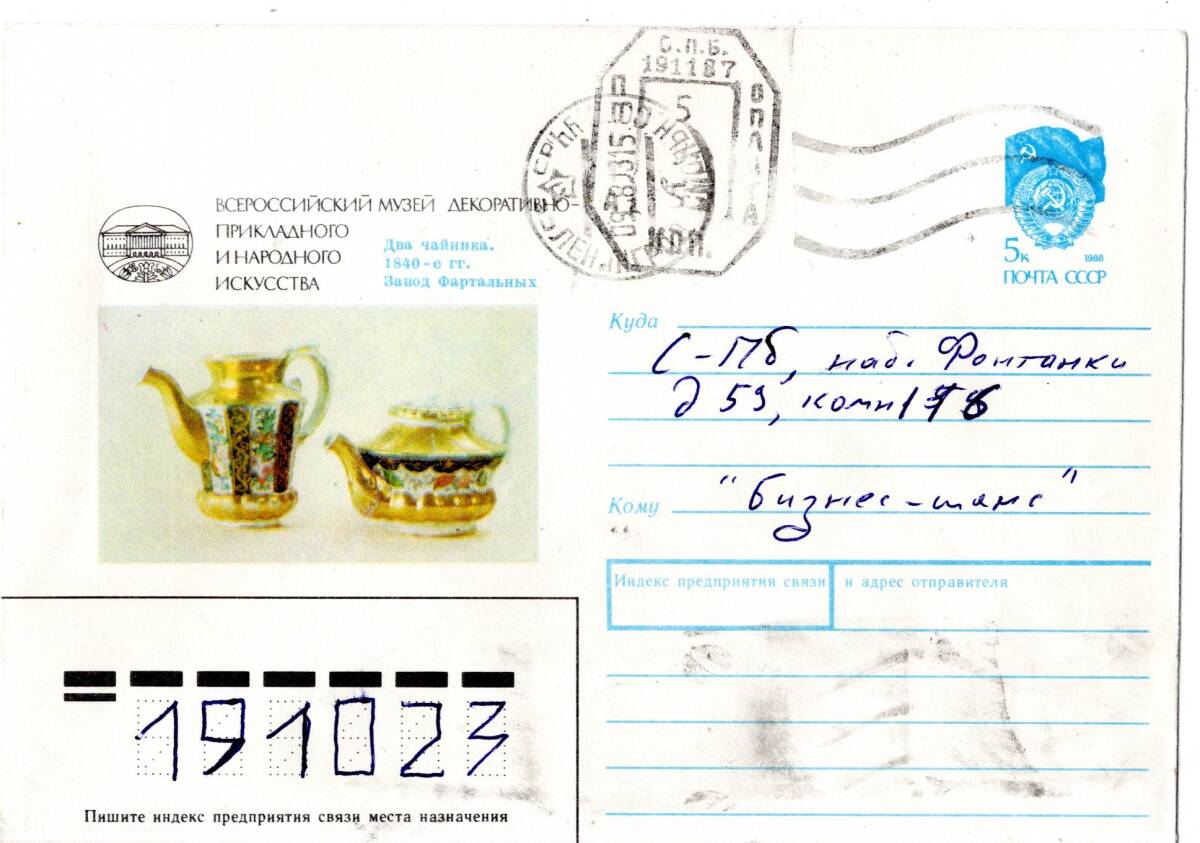 С.П.Б.
191187
5
ОПЛАТА
КОП.
ВСЕРОССИЙСКИЙ МУЗЕЙ ДЕКОРАТИВНО-
ПРИКЛАДНОГО
И НАРОДНОГО
ИСКУССТВА
Два чайника.
1840-е гг.
Завод Фартальных
5к
1988
ПОЧТА СССР
Куда
С-Пб, наб. Фонтанки
д 59, комн
Кому
"Бизнес-шанс"
Индекс предприятия связи и адрес отправителя
191023
Пишите индекс предприятия связи места назначения